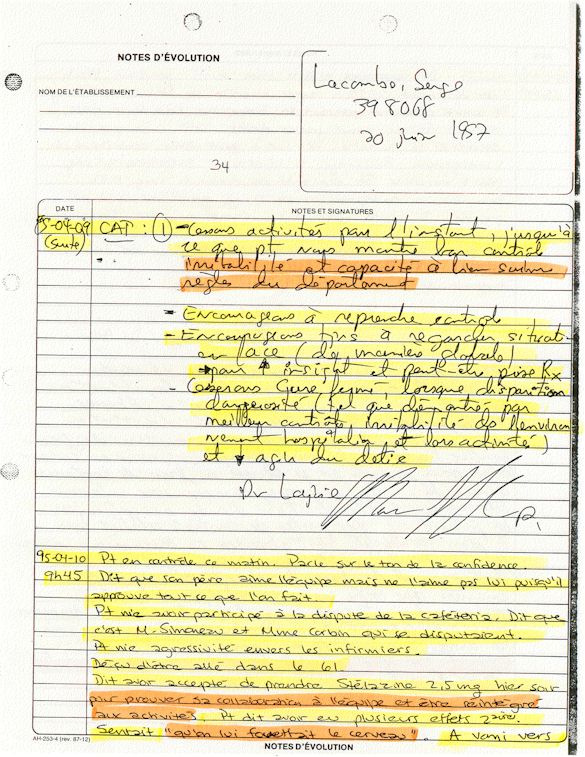 NOTES D'ÉVOLUTION
NOM DE L'ÉTABLISSEMENT
Lacombe, Serge
398068
20 juin 1957
34
DATE NOTES ET SIGNATURES
95-04-09 CAT : ① - Cessons activités pour l'instant, jusqu'à
(suite) ce que pt nous montre bon contrôle
irritabilité et capacité à bien suivre
règles du département
- Encourageons à reprendre contrôle
- Encourageons tjrs à regarder situat-
en face (de manière globale)
→ pour ↑ insight et peut-être prise Rx
- Cesserons Cure fermé, lorsque disparition
dangerosité (tel que démontré par
meilleur contrôle irritabilité ds l'environ
nement hospitalier et lors activité)
et ↓ agir du délire
Dr
95-04-10 Pt en contrôle ce matin. Parle sur le ton de la confidence.
9h45 Dit que son père aime l'équipe mais ne l'aime pas lui puisqu'il
approuve tout ce que l'on fait.
Pt nie avoir participé à la dispute de la cafétéria. Dit que
c'est M. Simoneau et Mme Corbin qui se disputaient.
Pt nie agressivité envers les infirmiers.
Déçu d'être allé dans le 61
Dit avoir accepté de prendre Stélazine 2,5mg hier soir
pour prouver sa collaboration à l'équipe et être réintégré
aux activités. Pt dit avoir eu plusieurs effets 2aires.
Sentait "qu'on lui fouettait le cerveau". A vomi vers
AH-253-4 (rev. 87-12)
NOTES D'ÉVOLUTION